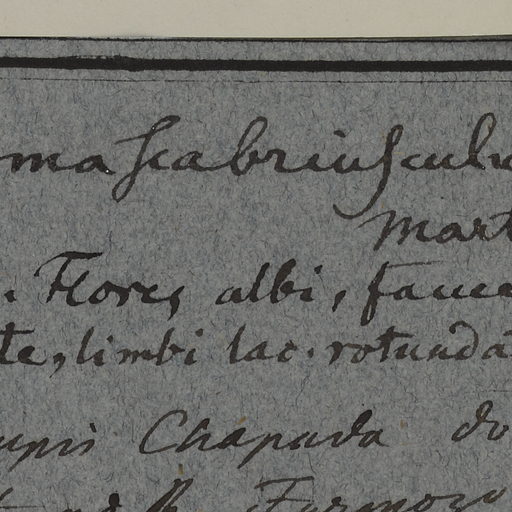 ma scabriuscula
Mart
. Flores albi, fauce
te, limbi lac. rotunda
upis Chapada do
ad R. Formozo